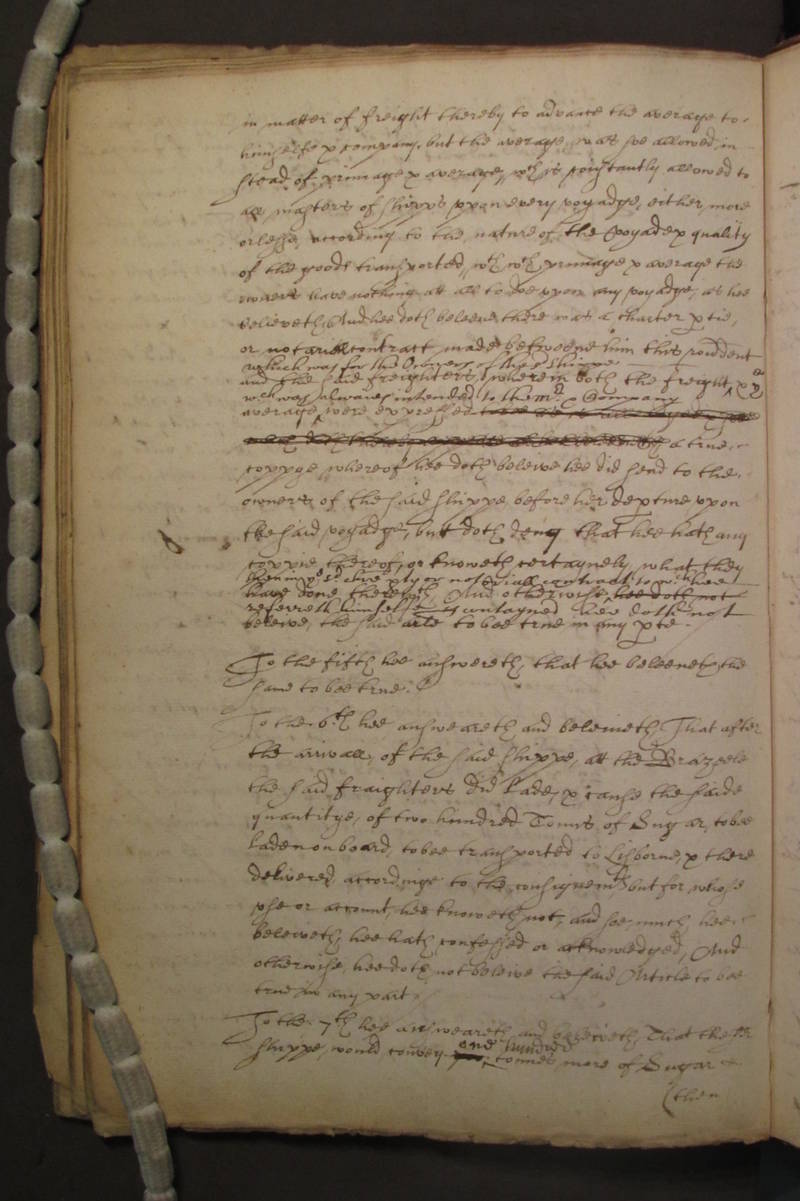 in matter of freight thereby to advance the average to
himselfe & company, but the average, was soe allowed in
stead of primage & average, wch is constantly allowed to
all masters of shipps vppon every voyadge, either more
or lesse, according to the nature of the voyadge & quality
of the goods transported, wth wch primage & average the
owners have nothing att all to doe vppon any voyadge, as hee
beleiveth, And hee doth beleeve there was a charter ptie,
or notariall contract made betweene him this rondent
which was for the Owners of the sd shippe
and the said freighters, wherein both the freight, & ye
wch was alwayes intended to the mr & Company
average, were expressed a true
coppye whereof hee doth beleive hee did send to the
owners of the said shippe before her depture vppon
the said voyadge, but doth deny that hee hath any
coppie thereof, or knoweth certaynely, what they
have done therewth, And otherwise hee doth not
referreth himselfe is contayned hee doth not
beleive, the said arle to bee true in any pte.
To the fifth hee answereth, that hee beleeveth the
same to bee true.
To the 6th hee answeareth and beleiveth That after
the arrivall, of the said shippe, att the Brazeele
the said fraighters did lade, & cause the saide
quantitye, of two hundred Tonns of Sugar, to bee
laden on board, to bee transported to Lisborne, & there
delivered accordinge to the consignemt, but for whose
vse or account, hee knoweth not, and soe much hee
beleiveth, hee hath confessed or acknowledged, And
otherwise, hee doth not beleive the said Article to bee
true in any part.
To the 7th hee answeareth and beleiveth, That the sd
one hundred
shippe, would convey tonnes more of Sugar
(then